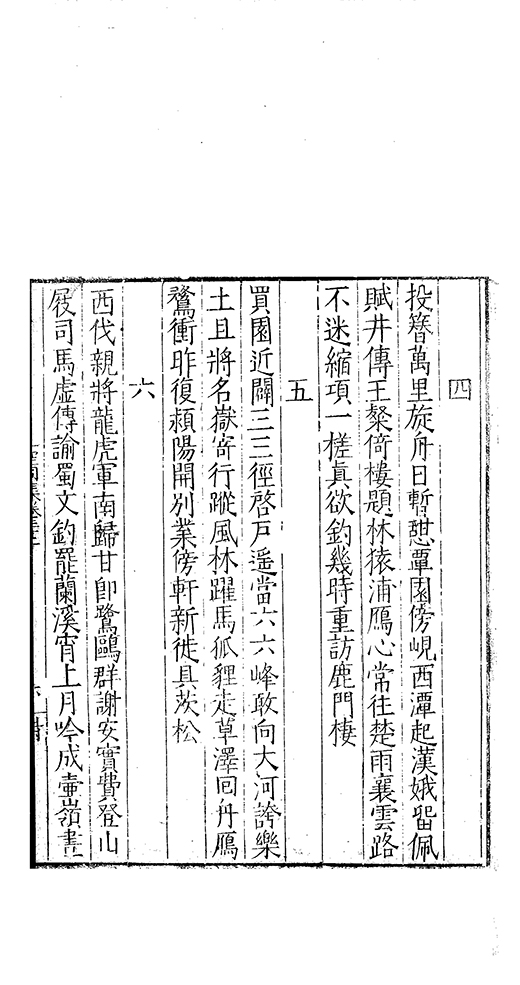 四
投簪萬里旋舟日暫憇覃園傍峴西潭起漢娥留佩
賦井傳王粲倚樓題林猿浦鴈心常往楚雨襄雲路
不迷縮項一槎真欲釣幾時重訪鹿門棲
五
買園近闢三三徑啓戸遥當六六峰敢向大河誇樂
土且將名嶽寄行蹤風林躍馬狐貍走草澤囘舟鴈
鶩衝昨復潁陽開別業傍軒新徙具茨松
六
西伐親將龍虎軍南歸甘卽鷺鷗群謝安實費登山
屐司馬虚傳諭蜀文釣罷蘭溪宵上月吟成壷嶺晝